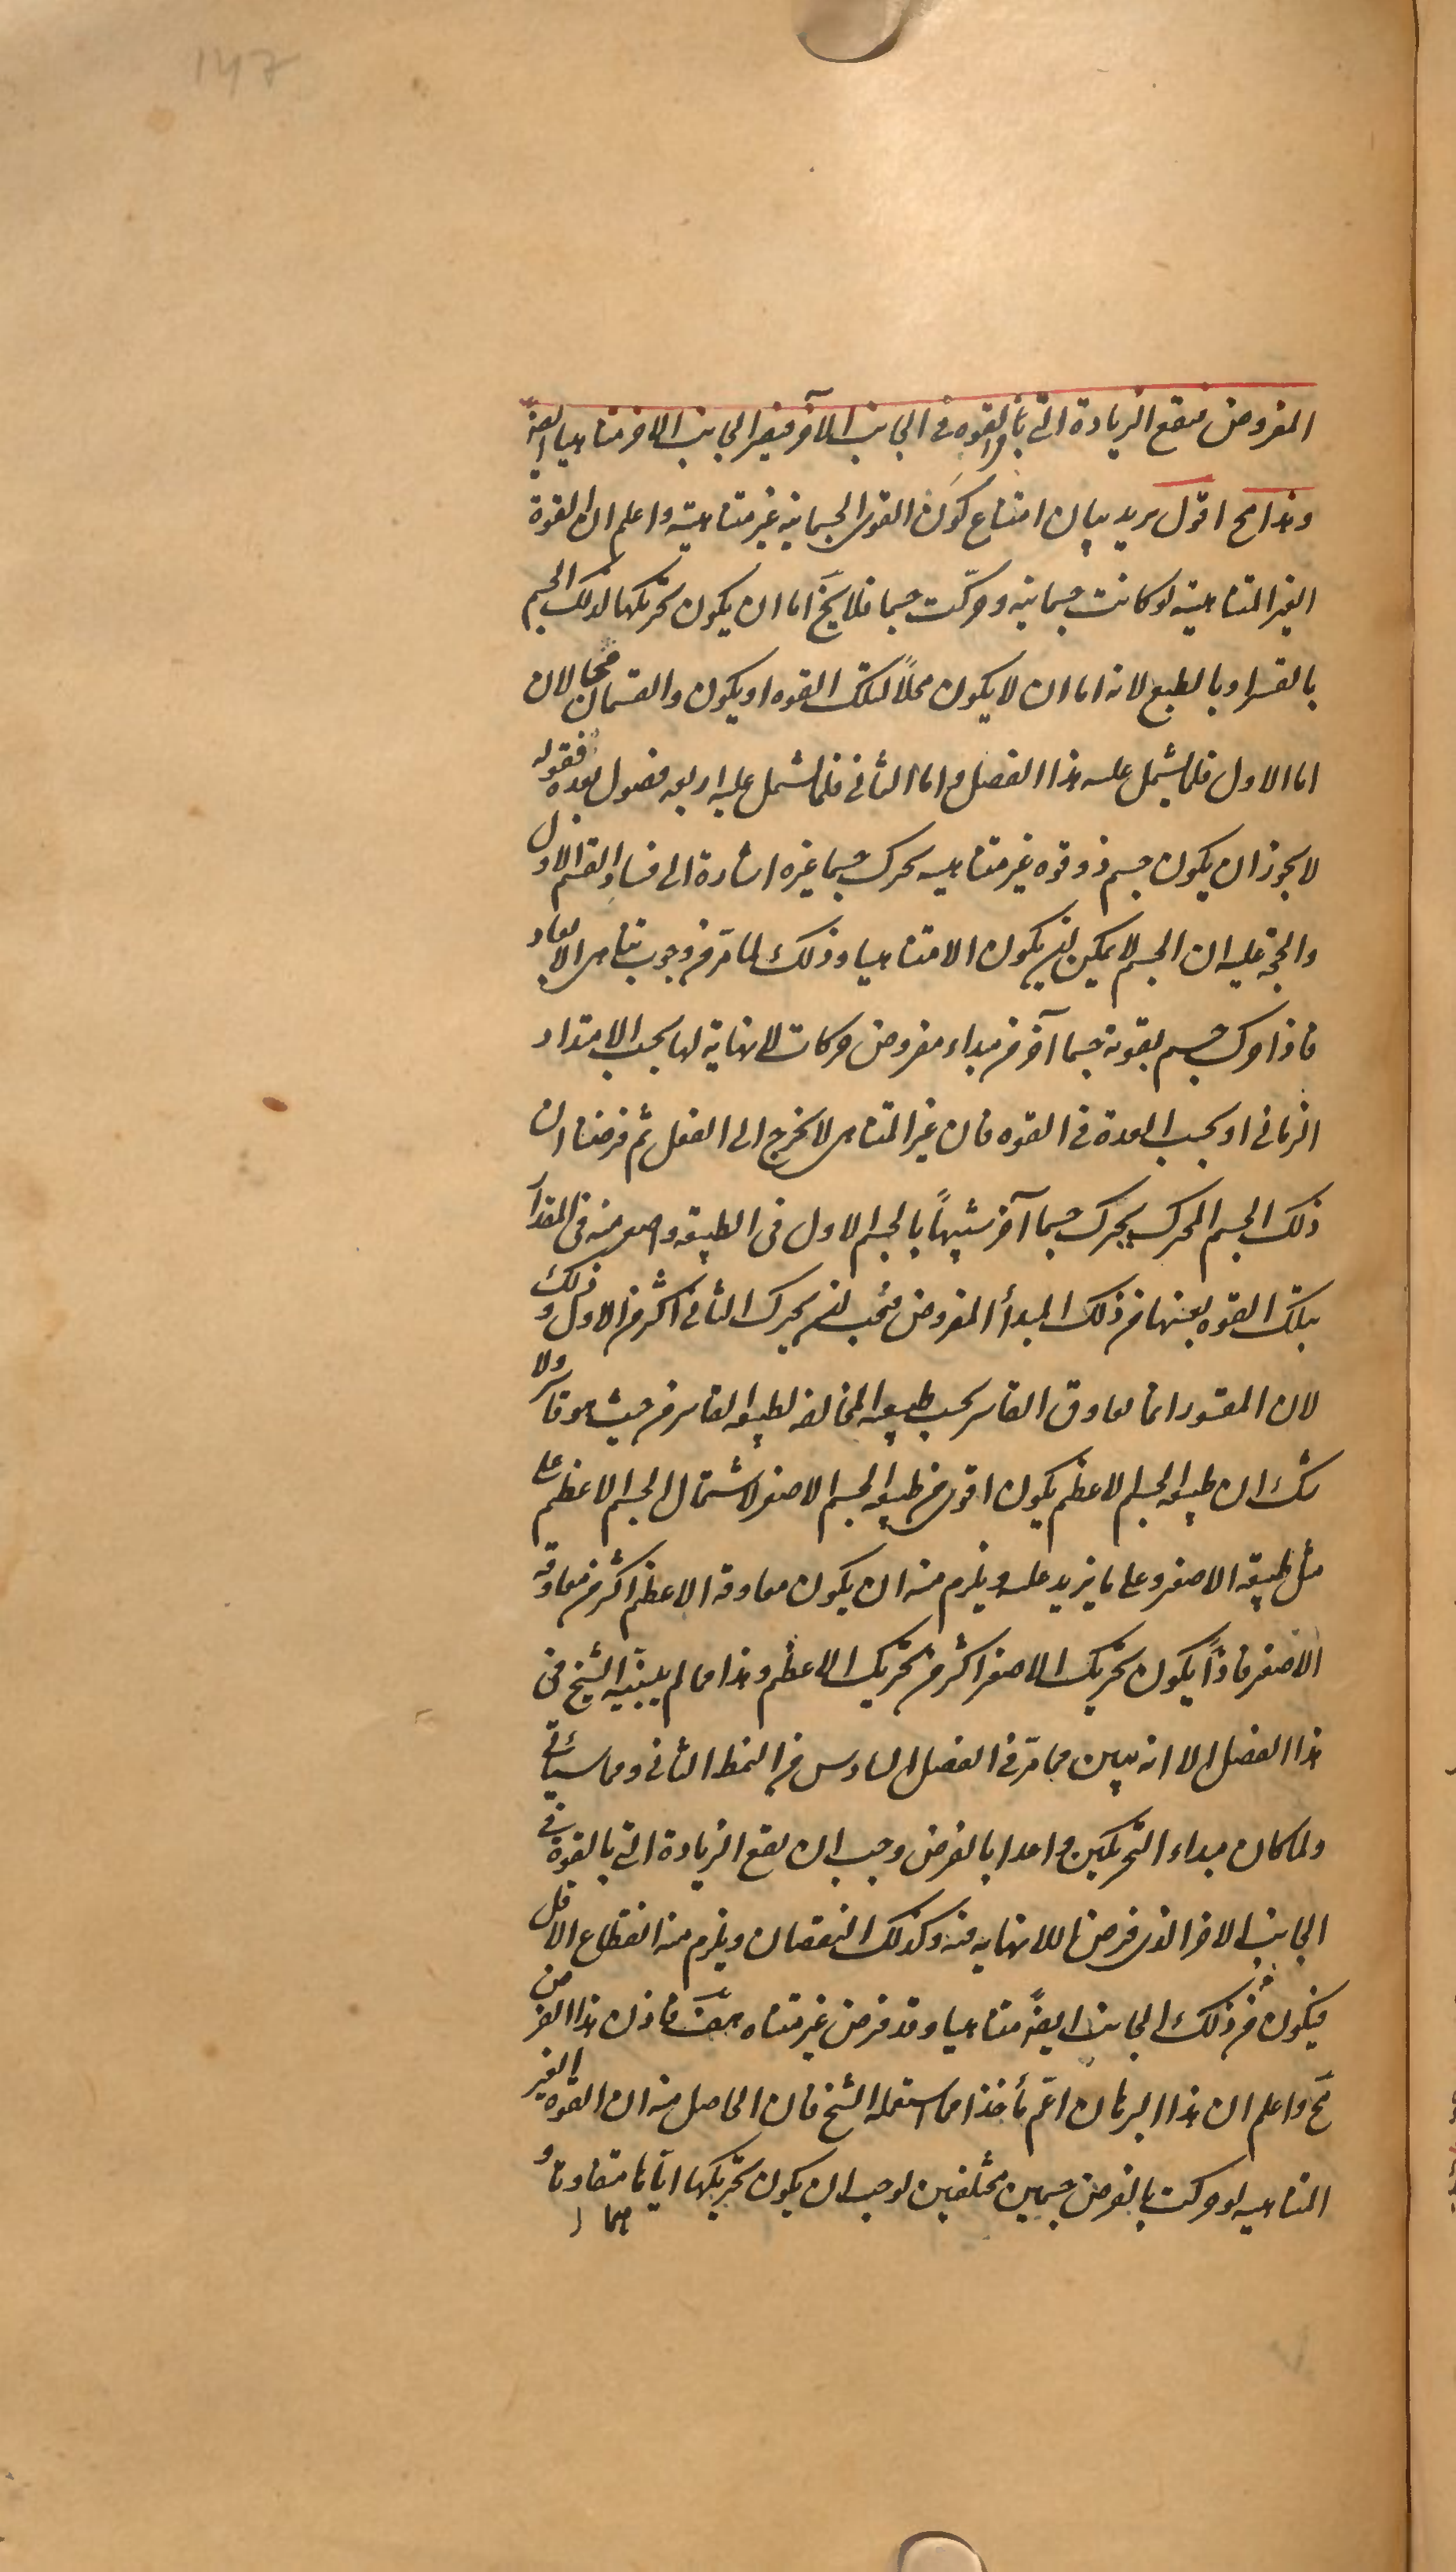 147
المفروض فيقع الزيادة التى بالقوه فى الجانب الآخر فيصير الجانب الاخر متناهيا ايضا
وهذا مح اقول يريد بيان امتناع كون القوى الجسمانيه غير متناهية واعلم ان القوة
الغير المتناهية لو كانت جسمانيه وحركت جسما فلا يخ اما ان يكون تحريكها لذلك الجسم
بالقسر او بالطبع لانه اما ان لا يكون محلاً لتلك القوه او يكون والقسمان محالان
اما الاول فلما يشمل عليه هذا الفصل و اما الثانى فلما يشمل عليه اربعه فصول بعده فقوله
لا يجوز ان يكون جسم ذو قوه غير متناهيه يحرك جسما غيره اشارة الى فساد القسم الاول
والحجة عليه ان الجسم لا يمكن ان يكون الا متناهيا وذلك لما مرّ من وجوب تناهى الابعاد
فاذا حرك جسم بقوته جسما آخر من مبداء مفروض حركات لا نهاية لها بحسب الامتداد
الزمانى او بحسب العدة فى القوه فان غير المتناهى لا يخرج الى الفعل ثم فرضنا ان
ذلك الجسم المحرك يحرك جسما آخر شبيهاً بالجسم الاول فى الطبيعة واصغر منه فى المقدار
بتلك القوه بعينها من ذلك المبدأ المفروض فيجب ان يحرك الثانى اكثر من الاول وذلك
لان المقسور انما يعاوق القاسر بحسب طبيعته المخالفه لطبيعه القاسر من حيث هو قاسر ولا
شك ان طبيعه الجسم الاعظم يكون اقوى من طبيعه الجسم الاصغر لاشتمال الجسم الاعظم على
مثل طبيعة الاصغر وعلى ما يزيد عليه ويلزم منه ان يكون معاوقه الاعظم اكثر من معاوقه
الاصغر فاذاً يكون تحريك الاصغر اكثر من تحريك الاعظم وهذا مما لم يبينه الشيخ فى
هذا الفصل الا انه يبين مما مرّ فى الفصل السادس من النمط الثانى ومما سيأتى
ولما كان مبداء التحريكين واحدا بالفرض وجب ان يقع الزيادة التى بالقوة فى
الجانب الاخر الذى فرضنا اللانهايه فيه وكذلك النقصان ويلزم منه انقطاع الاقل
فيكون من ذلك الجانب ايضً متناهيا وقد فرض غير متناه هف فاذن هذا الفرض
مح واعلم ان هذا البرهان اعم مأخذا مما استعمله الشيخ فان الحاصل منه ان القوه الغير
المتناهيه لو حركت بالفرض جسمين مختلفين لوجب ان يكون تحريكها اياهما متفاوتا